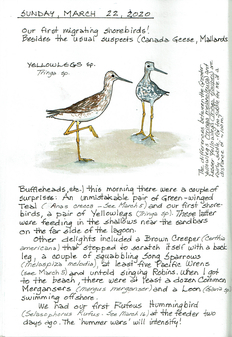 SUNDAY, MARCH 22, 2020
Our first migrating shorebirds!
Besides the "usual" suspects (Canada Geese, Mallards
YELLOWLEGS sp.
Tringa sp.
Buffleheads, etc.) this morning there were a couple of
surprises: An unmistakable pair of Green-winged
Teal (Anas crecca - See March 5) and our first shore-
birds, a pair of Yellowlegs (Tringa sp.). These latter
were feeding in the shallows near the sandbars
on the far side of the lagoon.
Other delights included a Brown Creeper (Certhia
americana) that stopped to scratch itself with a back
leg, a couple of squabbling Song Sparrows
(Melospiza melodia), at least five Pacific Wrens
(see March 5) and untold singing Robins. When I got
to the beach, there were at least a dozen Common
Mergansers (Mergus merganser) and a Loon (Gavia sp.)
swimming offshore.
We had our first Rufous Hummingbird
(Selasphorus rufus - See March 16) at the feeder two
days ago. The 'hummer wars' will intensify!